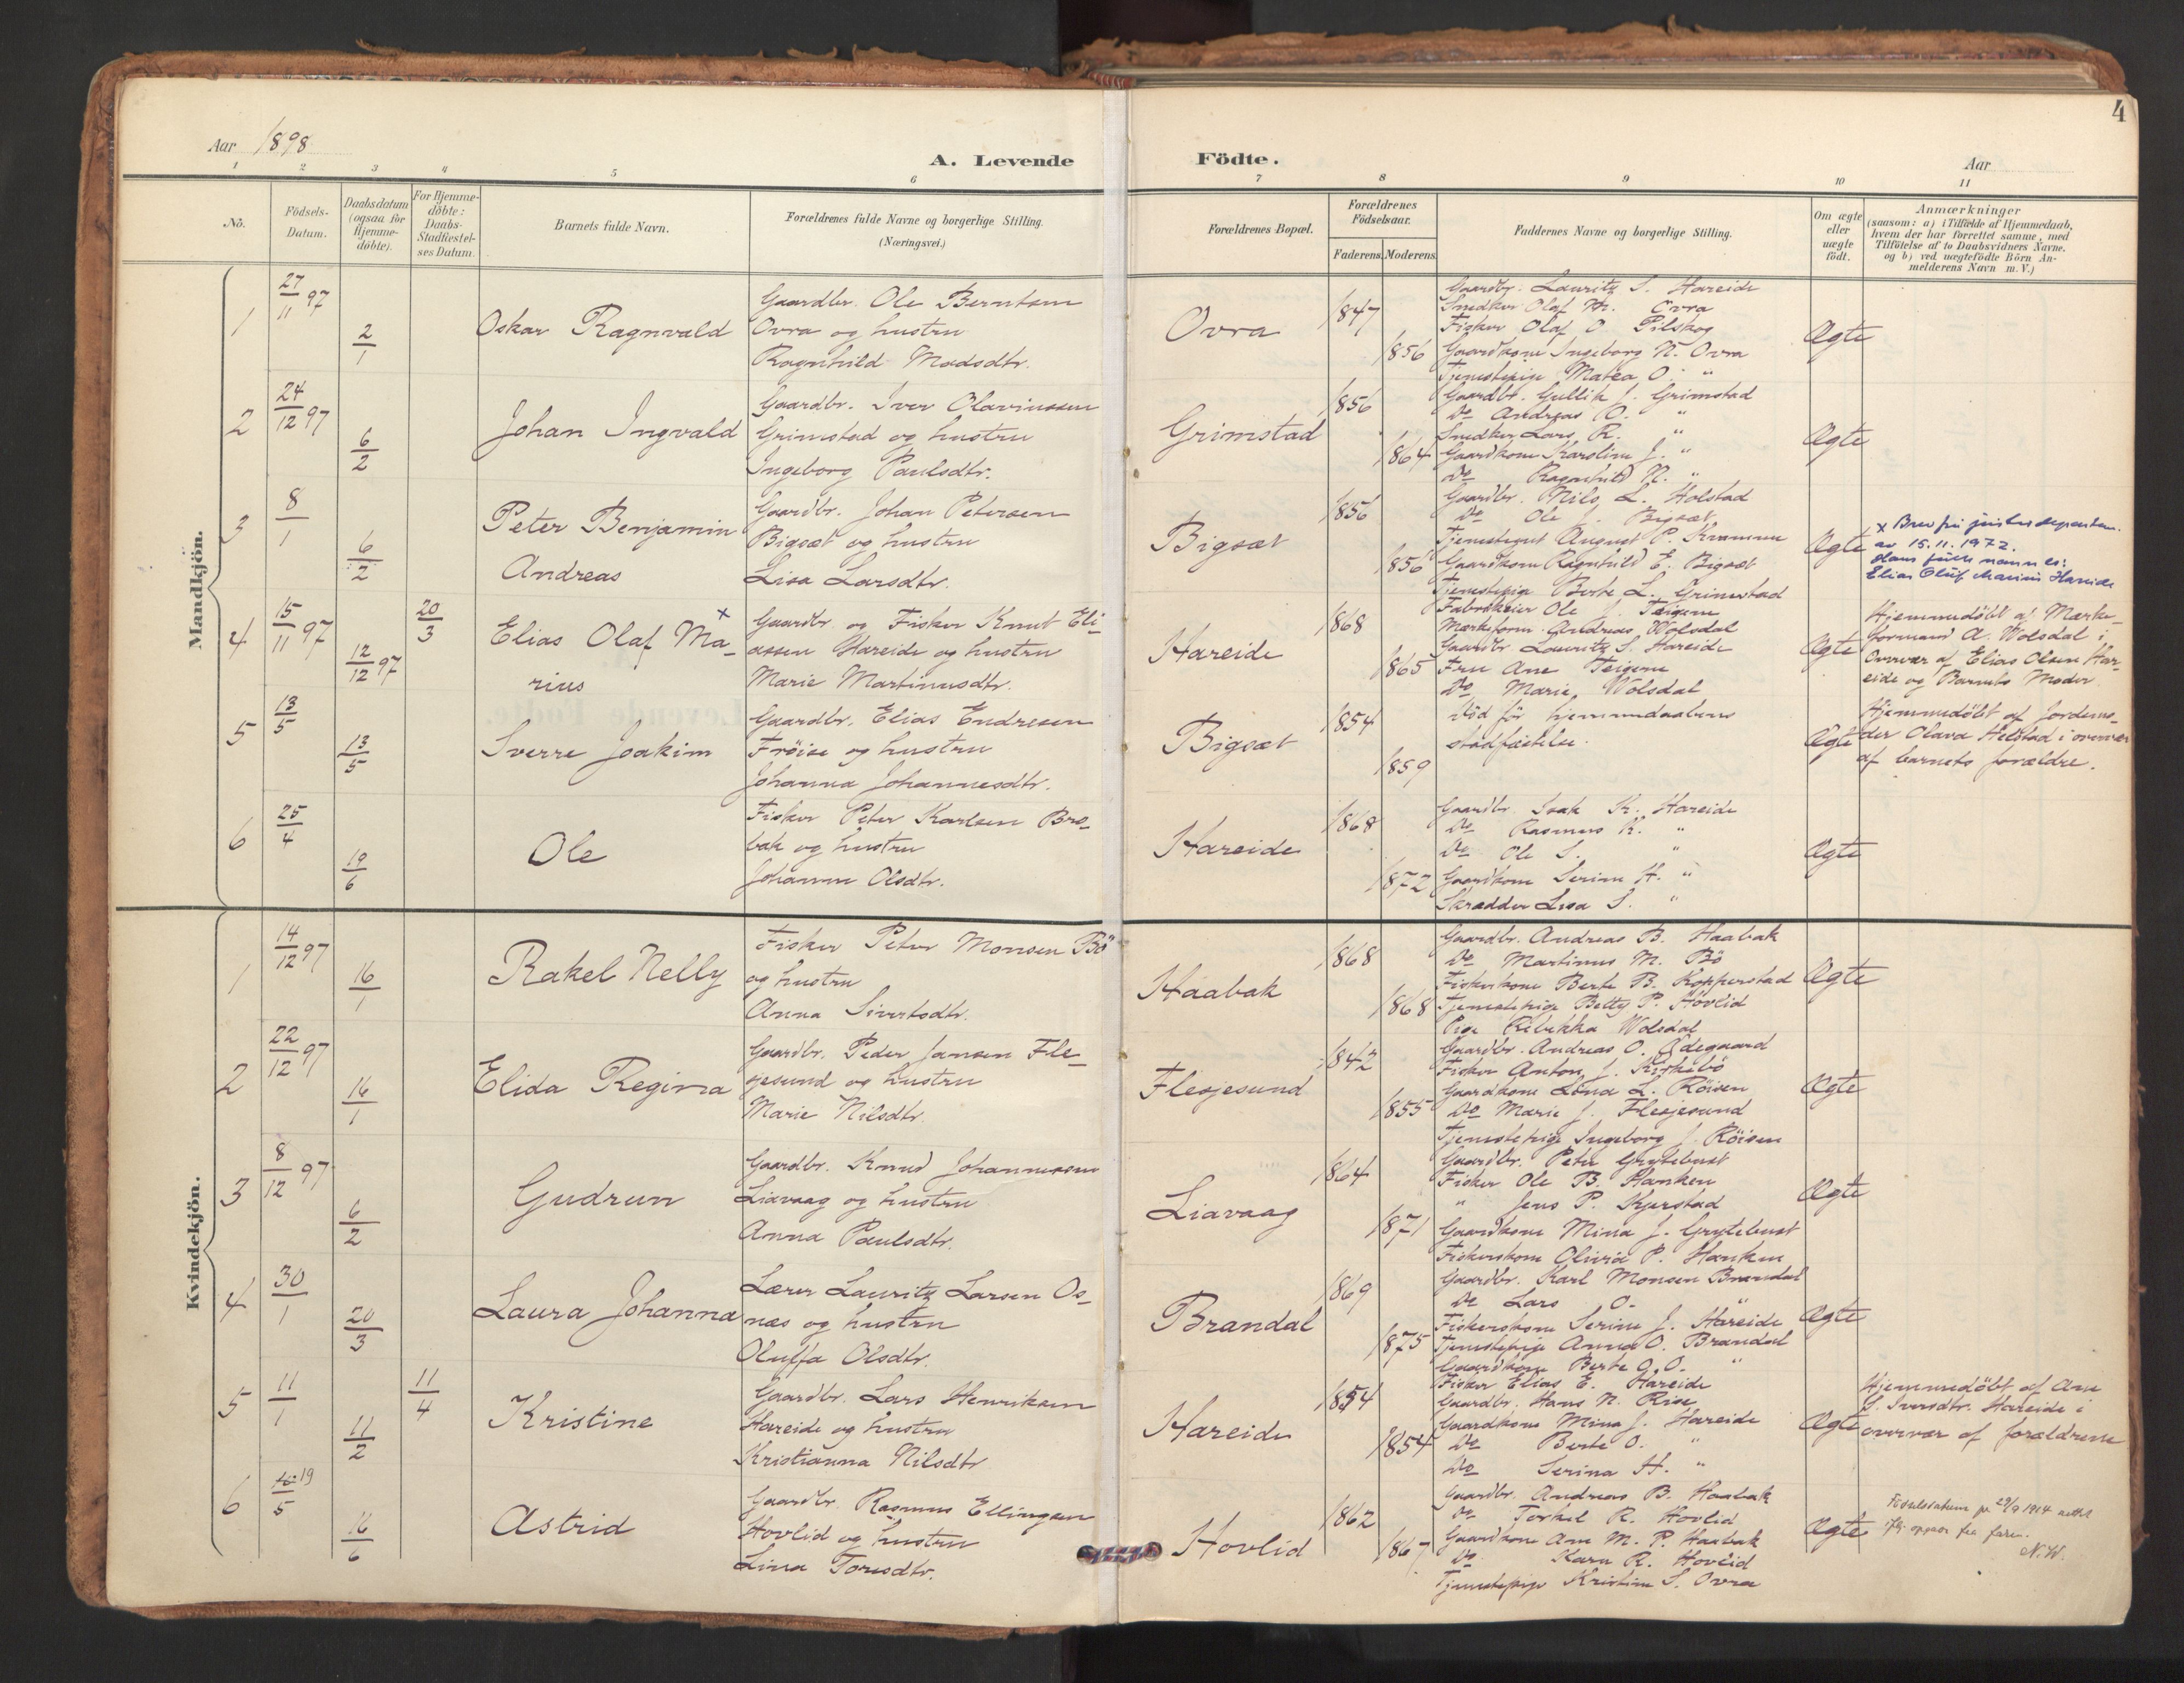 4
Aar 1898
A. Levende Födte.
Aar
1 2 3 4 5 6 7 8 9 10 11
No.
Födsels-
Datum.
Daabsdatum
(ogsaa for
Hjemme-
döbte).
For Hjemme-
döbte:
Daabs-
Stadfæstel-
ses Datum.
Barnets fulde Navn.
Forældrenes fulde Navne og borgerlige Stilling.
(Næringsvei.)
Forældrenes Bopæl.
Forældrenes
Födselsaar.
Faderens. Moderens.
Faddernes Navne og borgerlige Stilling.
Om ægte
eller
uægte
födt.
Anmærkninger
(saasom: a) i Tilfælde af Hjemmedaab,
hvem der har forrettet samme, med
Tilföielse af to Daabsvidners Navne,
og b) ved uægtefödte Börn An-
melderens Navn m. V.)
Mandkjön.
1
27/11 97
2/1
Oskar Ragnvald
Gaardbr. Ole Berntsen
Ovra og hustru
Ragnhild Madsdtr.
Ovra
1847
1856
Gaardbr. Lauritz S. Hareide
Snedker Olaf Kr. Ovra
Fisker Olaf O. Pilskog
Gaardkone Ingeborg N. Ovra
Tjenestepige Matea O. "
Ægte
2
24/12 97
6/2
Johan Ingvald
Gaardbr. Iver Olavinssen
Grimstad og hustru
Ingeborg Paulsdtr.
Grimstad
1856
1864
Gaardbr. Gullik J. Grimstad
Do Andreas O. "
Snedker Lars R. "
Gaardkone Karoline J. "
Do Ragnhild N. "
Ægte
3
8/1
6/2
Peter Benjamin
Andreas
Gaardbr. Johan Petersen
Bigsæt og hustru
Lisa Larsdtr.
Bigsæt
1856
1856
Gaardbr. Nils L. Holstad
Do Ole J. Bigsæt
Tjenestegut August P. Kvammen
Gaardkone Ragnhild E. Bigsæt
Tjenestepige Berte L. Grimstad
Ægte
x Brev frå justisdepartem.
av 15.11.1972.
Hans fulle namn er:
Elias Oluf Marius Hareide
4
15/11 97
12/12 97
20/3
Elias Olaf Ma-x
rius
Gaardbr. og Fisker Knut Eli-
assen Hareide og hustru
Marie Martinusdtr.
Hareide
1868
1865
Fabrikeier Ole J. Teigene
Mærkeform. Andreas Wolsdal
Gaardbr. Lauritz S. Hareide
Fru Ane Teigene
Do Marie Wolsdal
Ægte
Hjemmedöbt af Mærke-
formand A. Wolsdal i
Overvær af Elias Olsen Har-
eide og Barnets Moder.
5
13/5
13/5
Sverre Joakim
Gaardbr. Elias Endresen
Fröise og hustru
Johanna Johannesdtr.
Bigsæt
1854
1859
Död för hjemmedaabens
stadfæstelse.
Ægte
Hjemmedöbt af Jordemo-
der Olava Helstad i overvær
af barnets forældre.
6
25/4
19/6
Ole
Fisker Peter Karlsen Bro-
bak og hustru
Johanne Olsdtr.
Hareide
1868
1872
Gaardbr. Isak K. Hareide
Do Rasmus K. "
Do Ole S. "
Gaardkone Serine H. "
Skrædder Lisa S. "
Ægte
Kvindekjön.
1
14/12 97
16/1
Rakel Nelly
Fisker Peter Monsen Bö
og hustru
Anna Sivertsdtr.
Haabak
1868
1868
Gaardbr. Andreas B. Haabak
Do Martinus M. Bö
Fiskerkone Berte B. Kopperstad
Tjenestepige Betty P. Hovlid
Pige Rebekka Wolsdal
Ægte
2
22/12 97
16/1
Elida Regina
Gaardbr. Peder Jansen Fle-
sjesund og hustru
Marie Nilsdtr.
Flesjesund
1842
1855
Gaardbr. Andreas O. Ödegaard
Fisker Anton J. Kirkebö
Gaardkone Lona L. Röisen
Do Marie J. Flesjesund
Tjenestepige Ingeborg J. Röisen
Ægte
3
8/12 97
6/2
Gudrun
Gaardbr. Knud Johannessen
Liavaag og hustru
Anna Paulsdtr.
Liavaag
1864
1871
Gaardbr. Peter Grytebust
Fisker Ole B. Hanken
" Jens P. Kjerstad
Gaardkone Mina J. Grytebust
Fiskerkone Olivia P. Hanken
Ægte
4
30/1
20/3
Laura Johanna
Lærer Lauritz Larsen Os-
næs og hustru
Oluffa Olsdtr.
Brandal
1869
1875
Gaardbr. Karl Monsen Brandal
Do Lars O. "
Fiskerkone Serine J. Hareide
Tjenestepige Anna O. Brandal
Gaardkone Berte G. O. "
Ægte
5
11/1
11/2
11/4
Kristine
Gaardbr. Lars Henriksen
Hareide og hustru
Kristianna Nilsdtr.
Hareide
1854
1854
Fisker Elias E. Hareide
Gaardbr. Hans N. Rise
Gaardkone Mina J. Hareide
Do Berte O. "
Do Serina H. "
Ægte
Hjemmedöbt af Ane
S. Iversdtr. Hareide i
overvær af forældrene
6
19/5
16/6
Astrid
Gaardbr. Rasmus Ellingsen
Hovlid og hustru
Lina Toresdtr.
Hovlid
1862
1867
Gaardbr. Andreas B. Haabak
Do Torkel R. Hovlid
Gaardkone Ane M. P. Haabak
Do Karn R. Hovlid
Tjenestepige Kristine S. Ovra
Ægte
Födselsdatum pr 29/9 1914 rettet
iflg. opgave fra faren.
N.W.